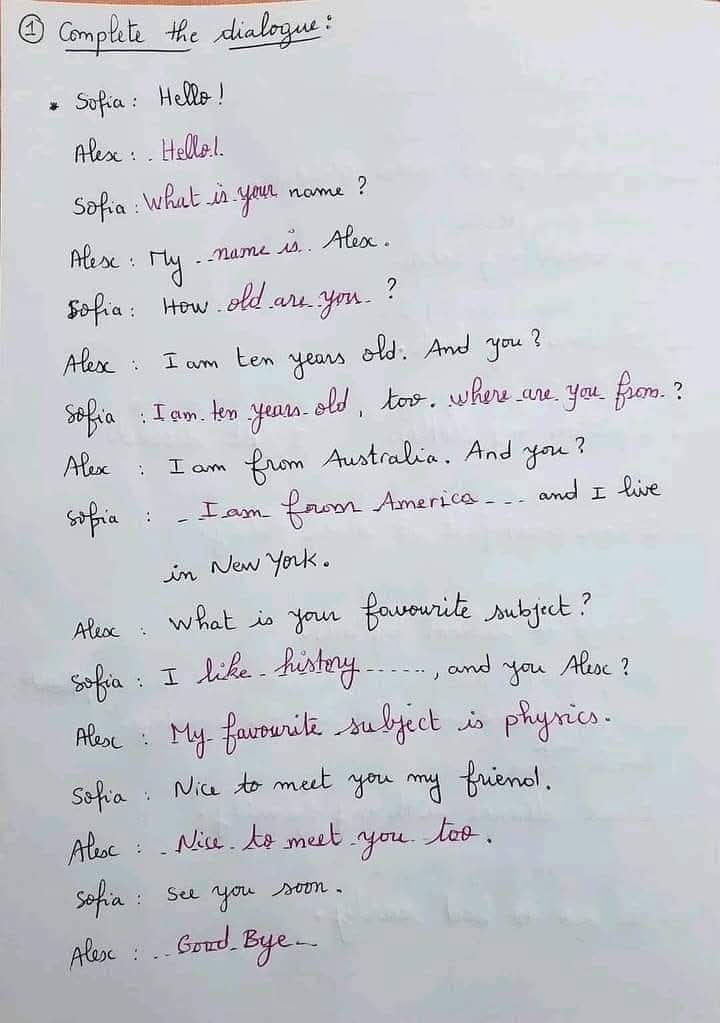 ① Complete the dialogue:
* Sofia: Hello!
Alex: . Hello!.
Sofia: What is your name ?
Alex: My .. name is . Alex.
Sofia: How . old are you . ?
Alex : I am ten years old. And you ?
Sofia : I am ten years old , too. where are you from . ?
Alex : I am from Australia. And you ?
Sofia : _ I am from America _ _ _ and I live
in New York.
Alex : What is your favourite subject ?
Sofia : I like history ......, and you Alex ?
Alex : My favourite subject is physics.
Sofia : Nice to meet you my friend.
Alex : . Nice to meet you too .
Sofia : See you soon .
Alex : .. Good Bye _